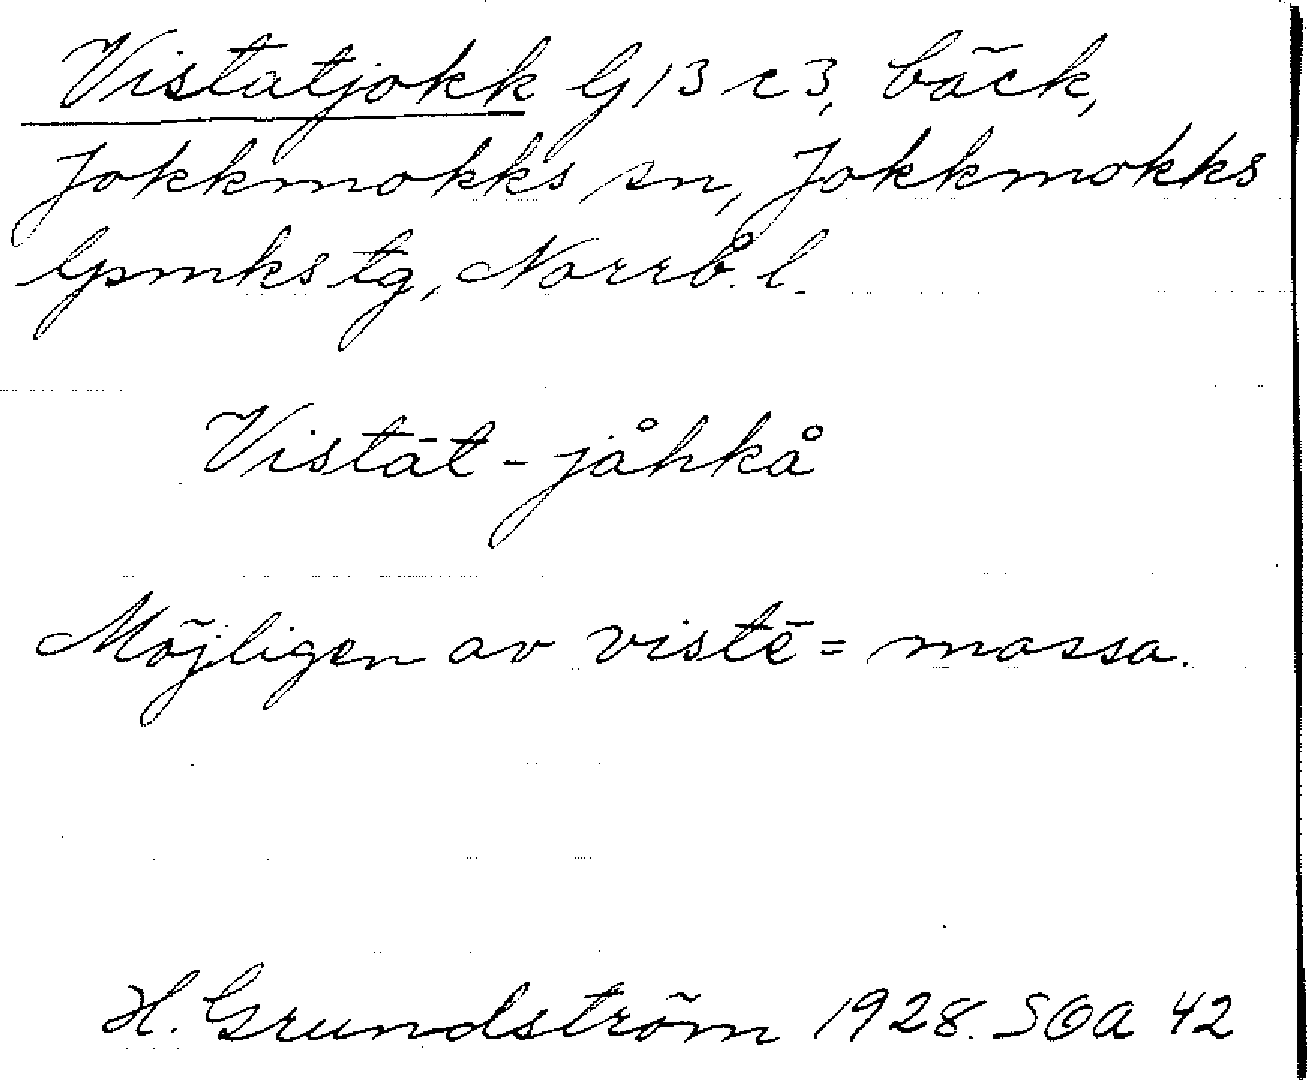 Vistatjokk G13c3, bäck,
Jokkmokks sn, Jokkmokks
lpmks tg, Norrb. l.
Vistāt-jåhkå
Möjligen av vistē = massa.
H. Grundström 1928. SOA 42